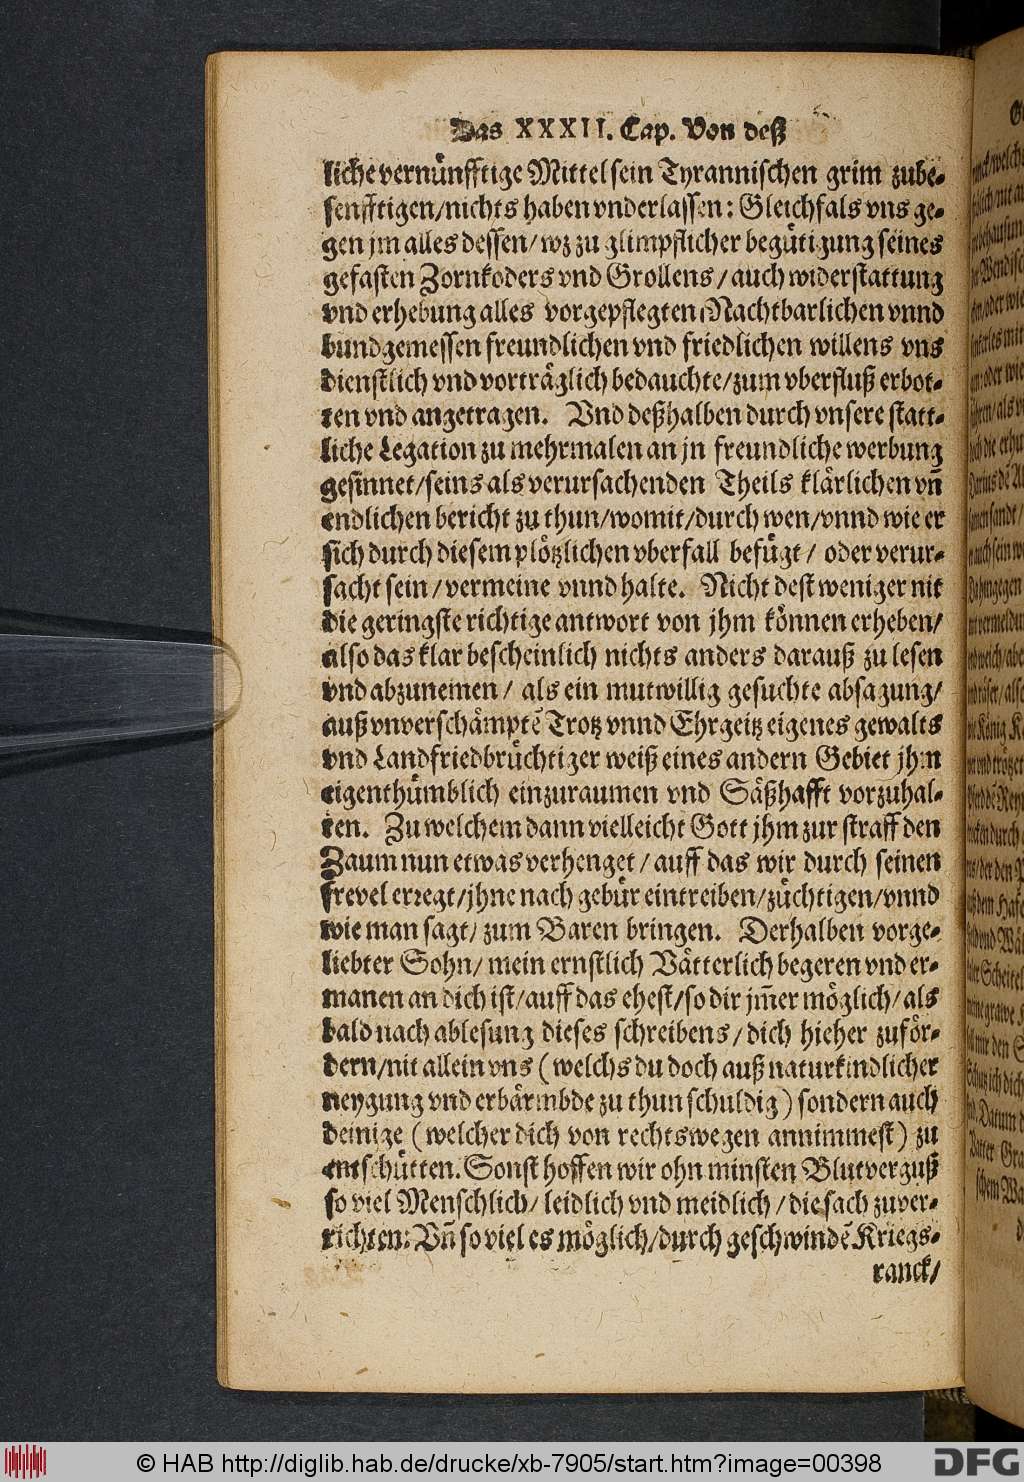 Das XXXII. Cap. Von deß
liche vernünfftige Mittel sein Tyrannischen grim zube-
senfftigen/nichts haben vnderlassen: Gleichfals vns ge-
gen jm alles dessen/wz zu glimpflicher begütigung seines
gefasten Zornkoders vnd Grollens/auch widerstattung
vnd erhebung alles vorgepflegten Nachtbarlichen vnnd
bundgemessen freundlichen vnd friedlichen willens vns
dienstlich vnd vorträglich bedauchte/zum vberfluß erbot-
ten vnd angetragen. Vnd deßhalben durch vnsere statt-
liche Legation zu mehrmalen an jn freundliche werbung
gesinnet/seins als verursachenden Theils klärlichen vñ
endlichen bericht zu thun/womit/durch wen/vnnd wie er
sich durch diesem plötzlichen vberfall befügt/ oder verur-
sacht sein/vermeine vnnd halte. Nicht dest weniger nit
die geringste richtige antwort von jhm können erheben/
also das klar bescheinlich nichts anders darauß zu lesen
vnd abzunemen/ als ein mutwillig gesuchte absagung/
auß vnverschämptẽ Trotz vnnd Ehrgeitz eigenes gewalts
vnd Landfriedbrüchtiger weiß eines andern Gebiet jhm
eigenthümblich einzuraumen vnd Säßhafft vorzuhal-
ten. Zu welchem dann vielleicht Gott jhm zur straff den
Zaum nun etwas verhenget/ auff das wir durch seinen
frevel erregt/jhne nach gebür eintreiben/züchtigen/vnnd
wie man sagt/ zum Baren bringen. Derhalben vorge-
liebter Sohn/ mein ernstlich Vätterlich begeren vnd er-
manen an dich ist/auff das ehest/so dir jm̃er möglich/als
bald nach ablesung dieses schreibens/dich hieher zuför-
dern/nit allein vns (welchs du doch auß naturkindlicher
neygung vnd erbärmbde zu thun schuldig) sondern auch
deinige (welcher dich von rechtswegen annimmest) zu
entschütten. Sonst hoffen wir ohn minsten Blutverguß
so viel Menschlich/ leidlich vnd meidlich/die sach zuver-
richten: Vñ so viel es möglich/durch geschwindẽ Kriegs-
ranck/
© HAB http://diglib.hab.de/drucke/xb-7905/start.htm?image=00398
DFG